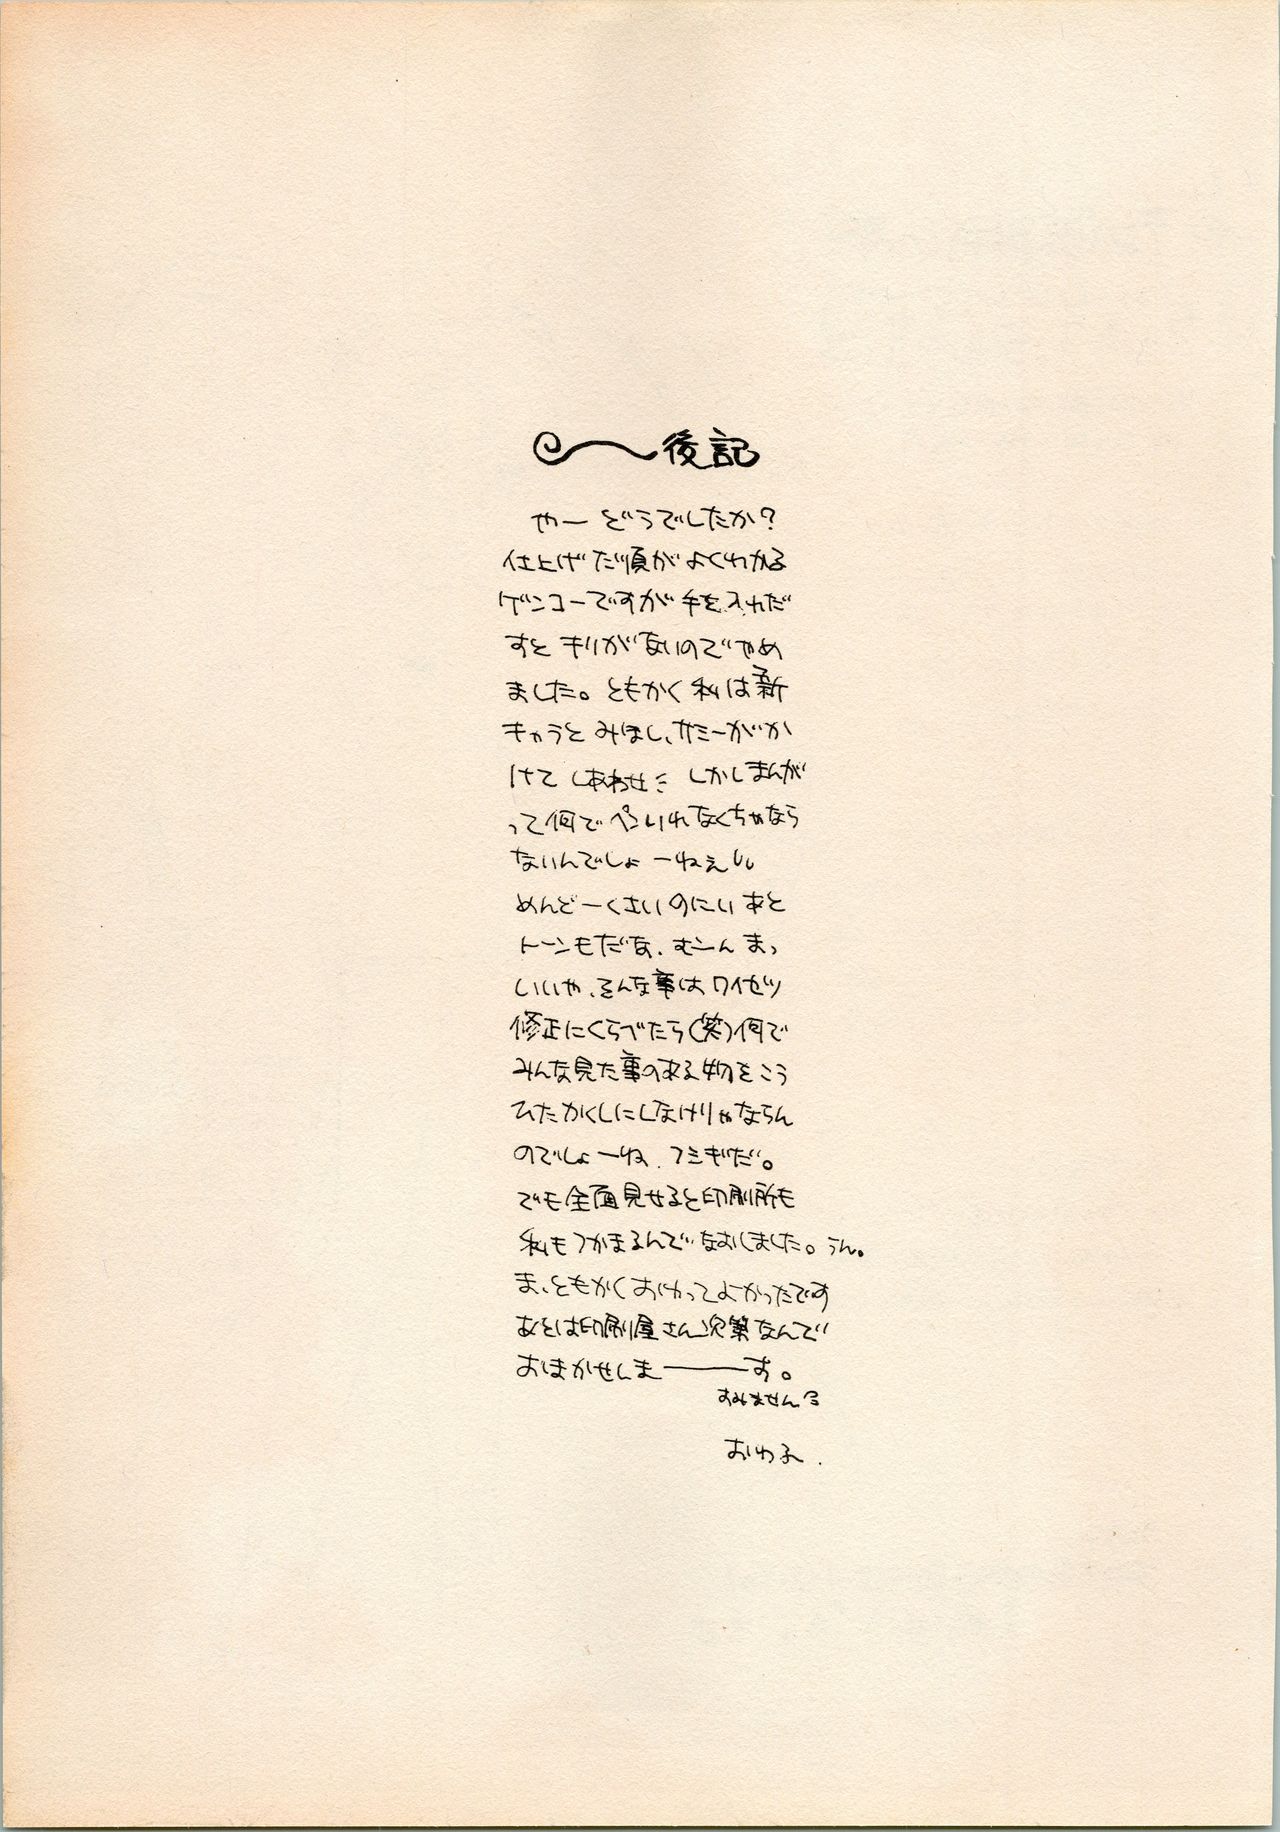 後記
やー どうでしたか？
仕上げた順がよくわかる
ゲンコーですが手を入れだ
すと キリがないのでやめ
ました。ともかく私は新
キャラと みほし、サミーがか
けて しあわせ しかしまんが
って何でペンいれなくちゃなら
ないんでしょーねぇ
めんどーくさいのにい あと
トーンもだな、むーん まっ
いいや、そんな事はワイセツ
修正にくらべたら(笑)何で
みんな見た事のある物をこう
ひたかくしにしなけりゃならん
のでしょーね、フシギだ。
でも全面見せると印刷所も
私もつかまるんでなおしました。うん。
ま、ともかくおわってよかったです
あとは印刷屋さん次第なんで
おまかせしまーーーす。
すみません